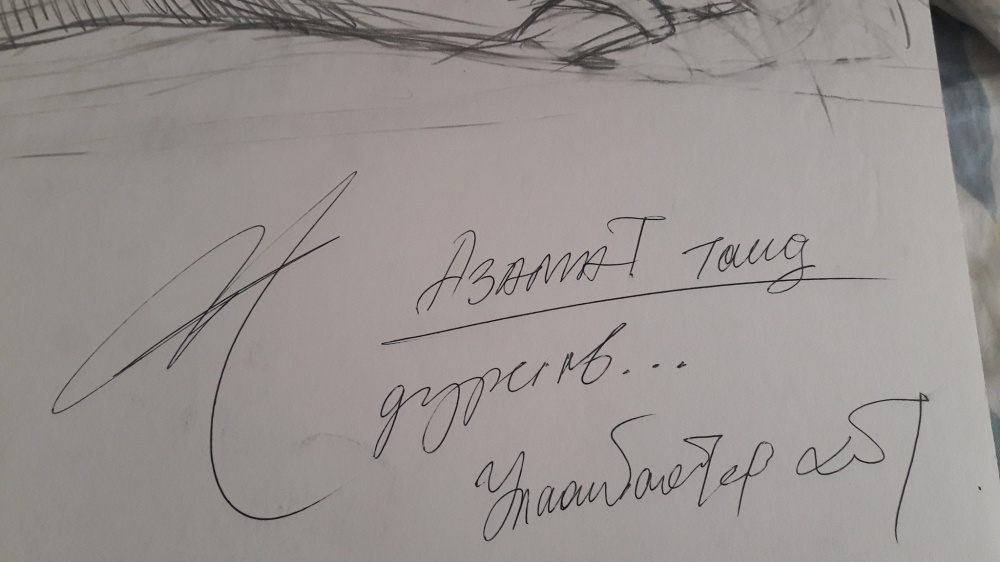 Азамат танд
дурсгав...
Улаанбаатар хот